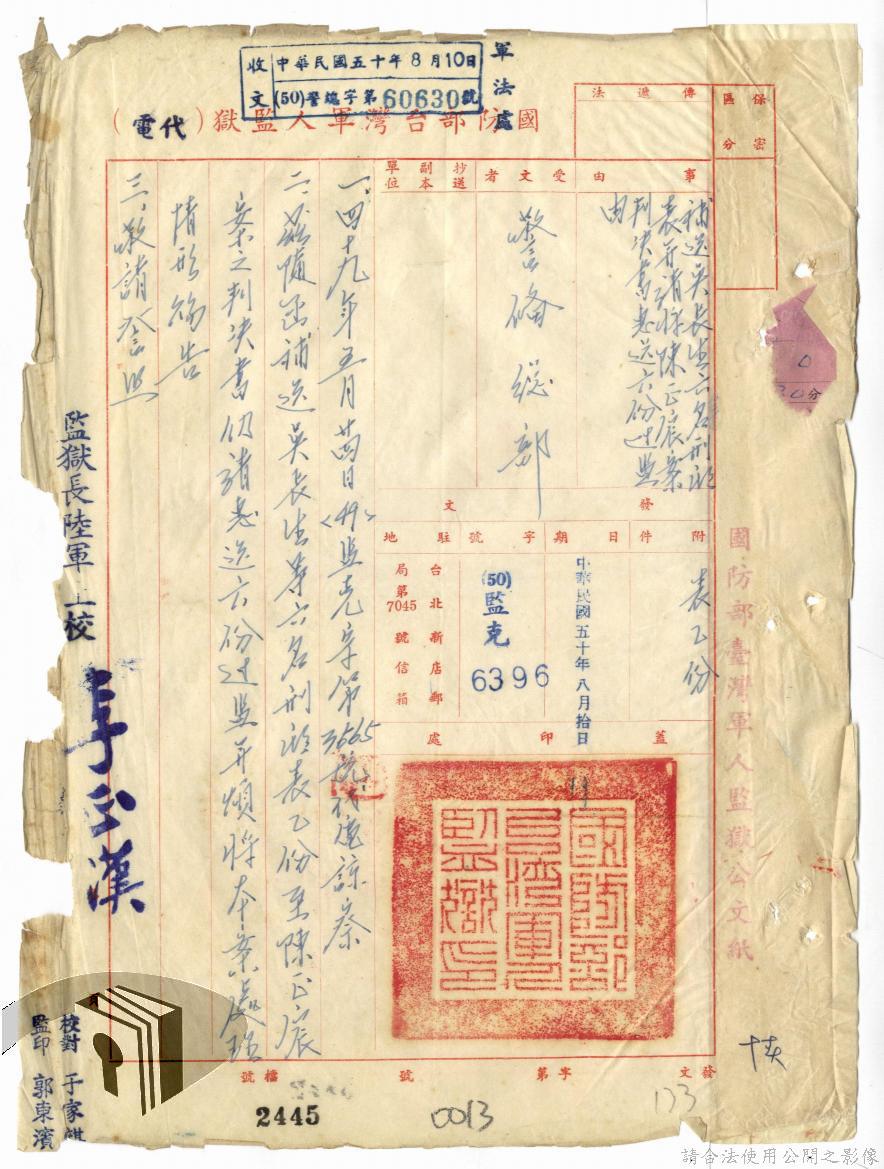 軍法處
收文 中華民國五十年8月10日
(50)警𥙿字第60630號
國防部台灣軍人監獄(代電)
保密區分
傳遞法
事由
補送吳長生六名刑期
表并請將陳正宸案
判决書惠送六份過監
由
受文者
警備總部
抄送副本單位
發文
附件
表乙份
日期
中華民國五十年八月拾日
字號
(50)監克
6396
駐地
台北新店郵
局第7045號信箱
蓋印處
國防部台灣軍人監獄印
一、四十九年五月 日<49>監克字第3665號代電諒察
二、茲隨函補送吳長生等六名刑期表乙份至陳正宸
案之判决書仍請惠送六份過監并煩將本案處理
情形賜告
三、敬請詧照
監獄長陸軍上校
李正漢
校對 于家祺
監印 郭東濱
國防部臺灣軍人監獄公文紙
發文 字第 號
檔號
2445
0013
173
請合法使用公開之影像